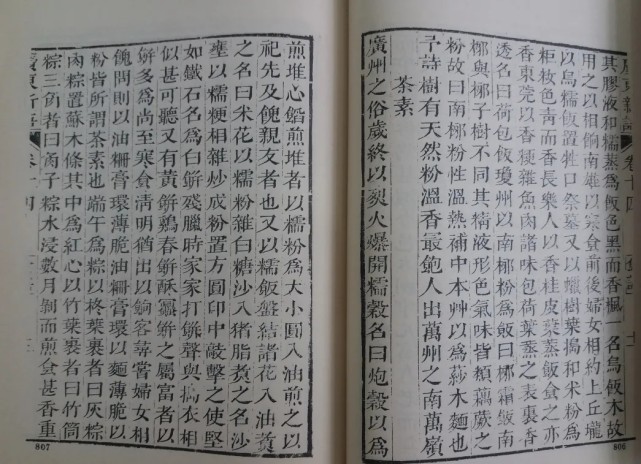 其膠液和糯蒸爲飯色黑而香楓一名烏飯木故
用之以相餉南雄以寒食前後婦女相約上丘壠
以烏糯飯置牲口祭墓又以蠟樹葉搗和米粉爲
粔籹色靑而香長樂人以香桂皮葉蒸飯食之亦
香東莞以香粳雜魚肉諸味包荷葉蒸之表裏香
透名曰荷包飯瓊州以南椰粉爲飯曰椰霜飯南
椰與椰子樹不同其精液形色氣味皆類藕蕨之
粉故曰南椰粉性溫熱補中本艸以爲莎木麵也
予詩樹有天然粉溫香最飽人出萬州之南萬嶺
茶素
廣州之俗歲終以烈火爆開糯穀名曰炮穀以爲
卷十四
806
煎堆心餡煎堆者以糯粉爲大小圓入油煎之以
祀先及餽親友者也又以糯飯盤結諸花入油煑
之名曰米花以糯粉雜白糖沙入猪脂煑之名沙
壅以糯粳相雜炒成粉置方圓印中敲擊之使堅
如鐵石名爲白餠殘臘時家家打餠聲與擣衣相
似甚可聽又有黃餠鷄春餠酥蜜餠之屬富者以
餠多爲尚至寒食清明猶出以餉客尋常婦女相
餽問則以油䊚膏環薄脆油䊚膏環以麵薄脆以
粉皆所謂茶素也端午爲粽以柊葉裹者曰灰粽
肉粽置蘇木條其中爲紅心以竹葉裹者曰竹筒
粽三角者曰角子粽水浸數月剝而煎食甚香重
廣東新語 卷十四
807